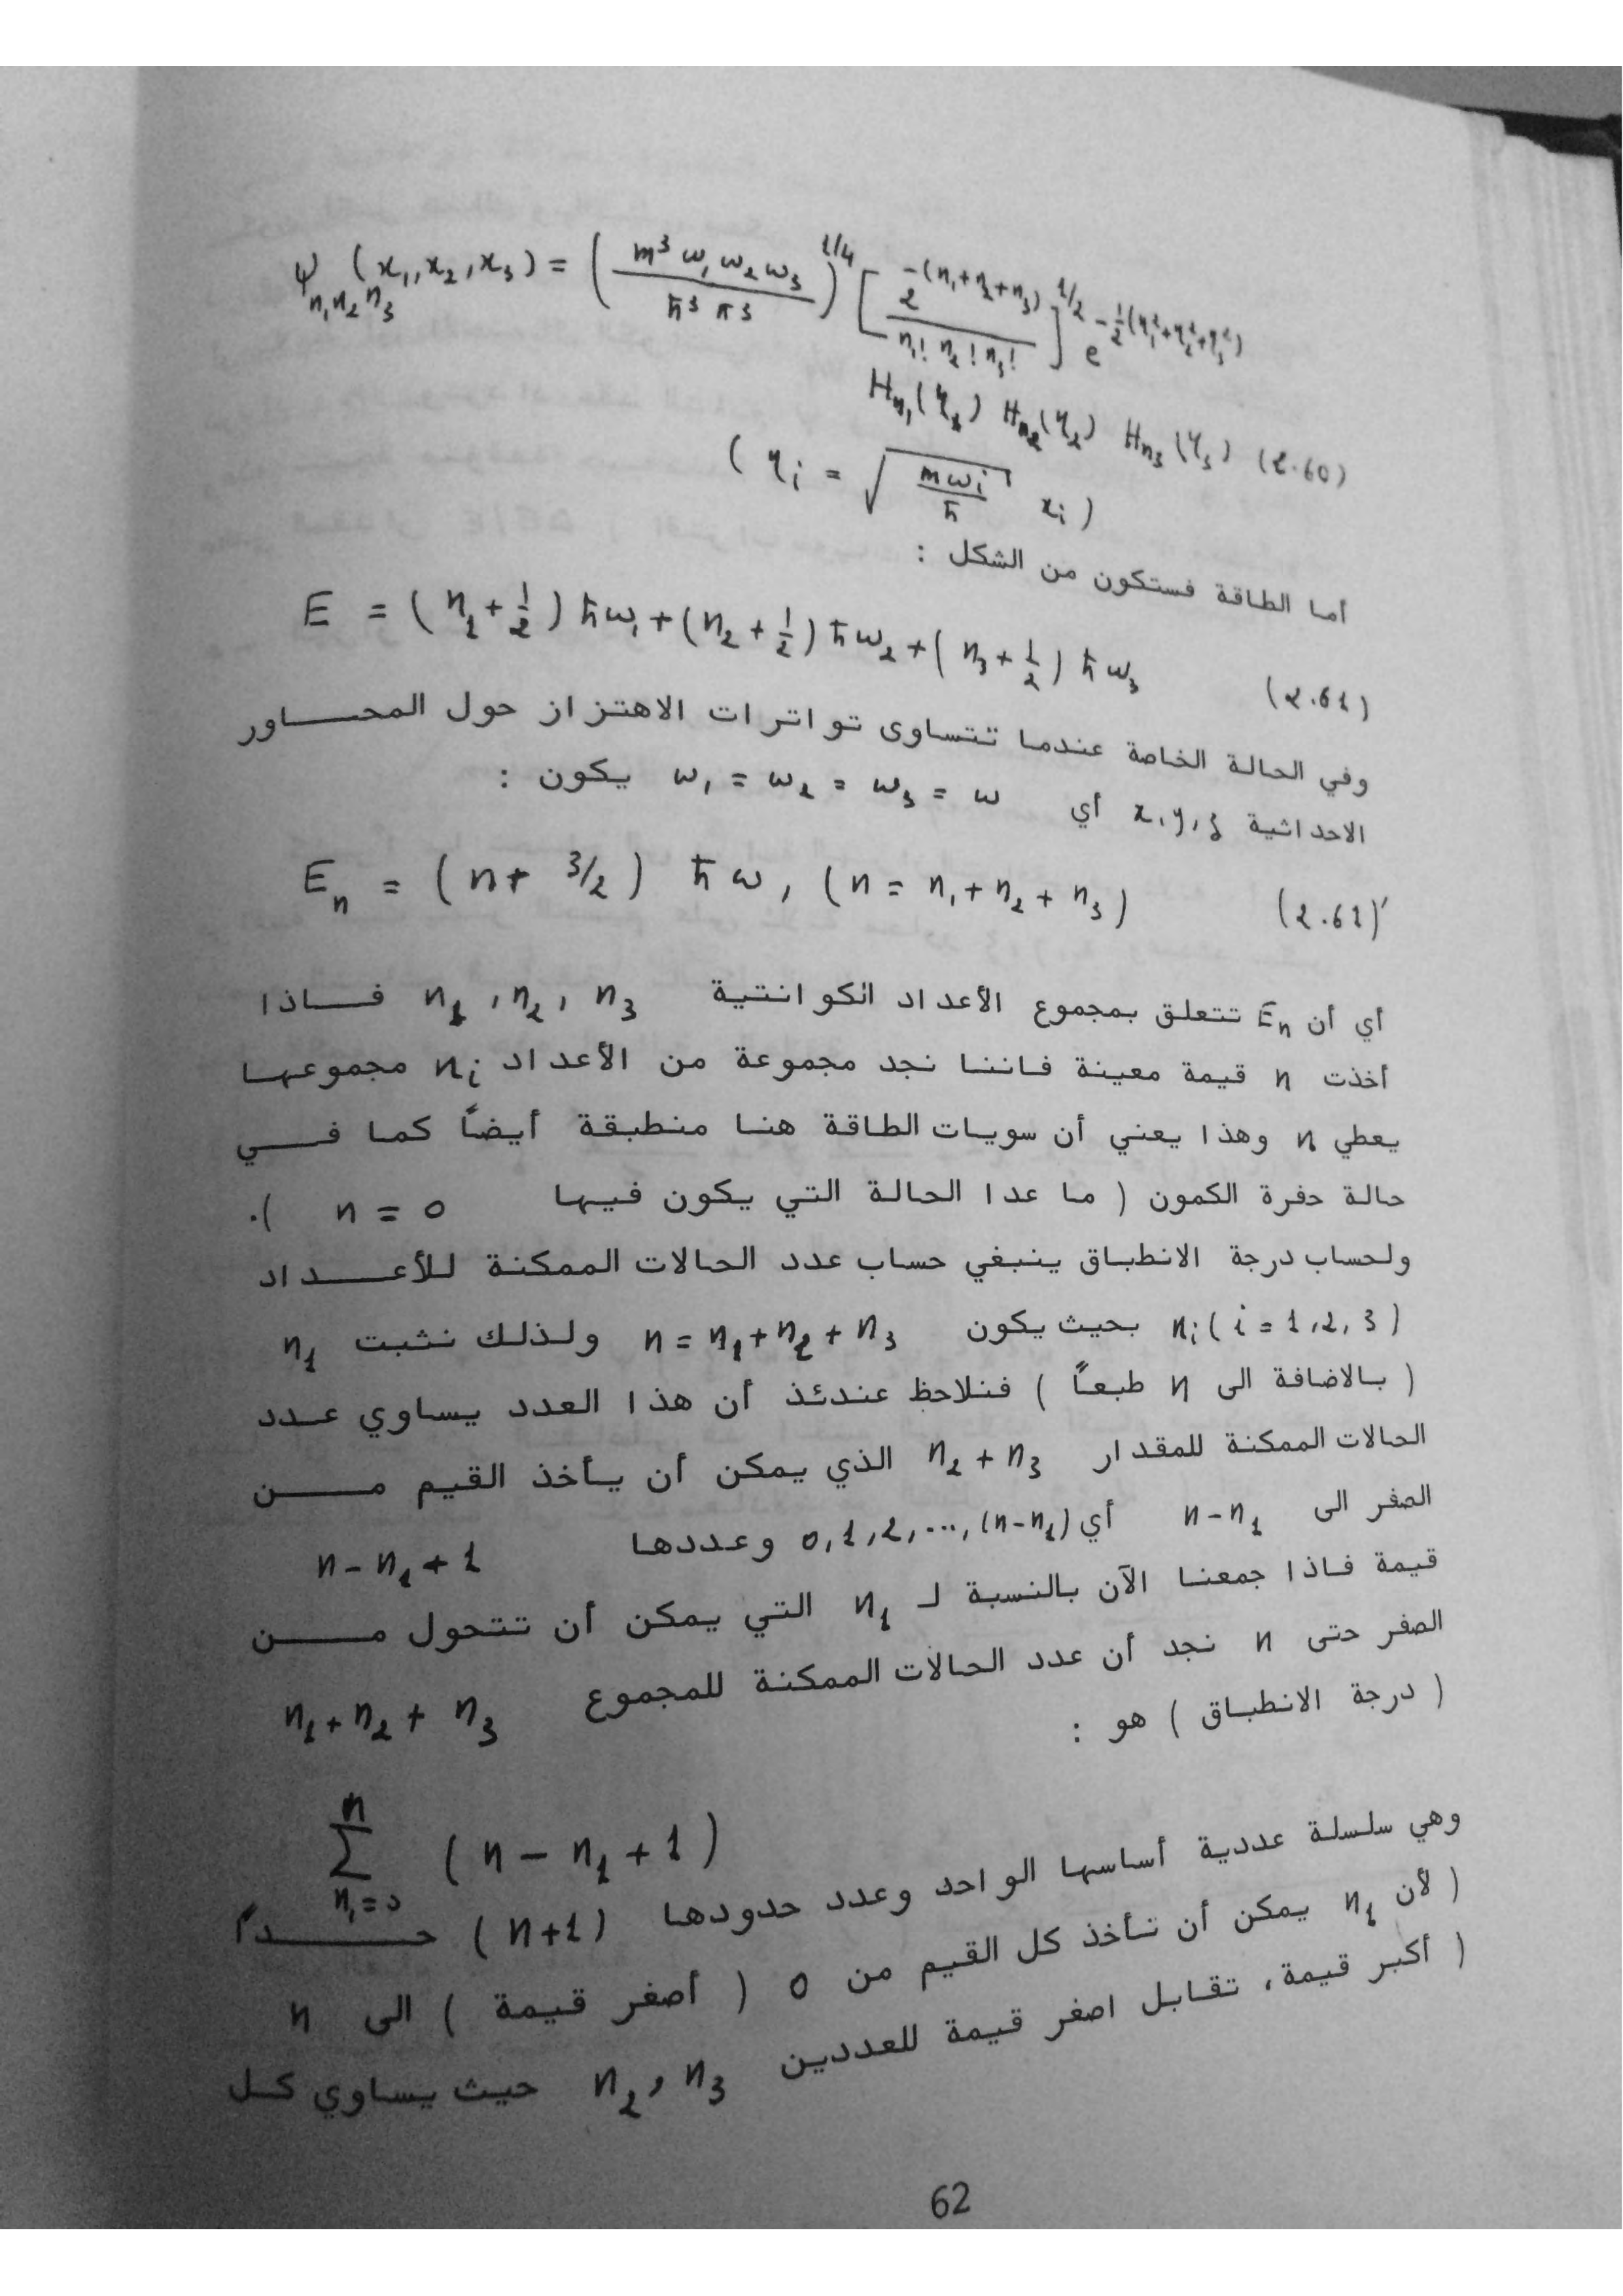 ψ_{n₁n₂n₃} (x₁,x₂,x₃) = ( m³ω₁ω₂ω₃ / ħ³π³ )^{1/4} [ 2^{-(n₁+n₂+n₃)} / n₁! n₂! n₃! ]^{1/2} e^{-½(η₁²+η₂²+η₃²)}
H_{n₁}(η₁) H_{n₂}(η₂) H_{n₃}(η₃) (2.60)
( η_i = √(mω_i / ħ) x_i )
أما الطاقة فستكون من الشكل :
E = (n₁ + ½) ħω₁ + (n₂ + ½) ħω₂ + (n₃ + ½) ħω₃ (2.61)
وفي الحالة الخاصة عندما تتساوى تواترات الاهتزاز حول المحاور
الاحداثية x,y,z أي ω₁ = ω₂ = ω₃ = ω يكون :
E_n = (n + 3/2) ħω , (n = n₁ + n₂ + n₃) (2.61)′
أي أن E_n تتعلق بمجموع الأعداد الكوانتية n₁ , n₂ , n₃ فاذا
أخذت n قيمة معينة فاننا نجد مجموعة من الأعداد n_i مجموعها
يعطي n وهذا يعني أن سويات الطاقة هنا منطبقة أيضاً كما في
حالة حفرة الكمون ( ما عدا الحالة التي يكون فيها n = 0 ).
ولحساب درجة الانطباق ينبغي حساب عدد الحالات الممكنة للأعداد
n_i ( i = 1,2,3 ) بحيث يكون n = n₁ + n₂ + n₃ ولذلك نثبت n₁
( بالاضافة الى n طبعاً ) فنلاحظ عندئذ أن هذا العدد يساوي عدد
الحالات الممكنة للمقدار n₂ + n₃ الذي يمكن أن يأخذ القيم من
الصفر الى n-n₁ أي 0,1,2,...,(n-n₁) وعددها n - n₁ + 1
قيمة فاذا جمعنا الآن بالنسبة لـ n₁ التي يمكن أن تتحول من
الصفر حتى n نجد أن عدد الحالات الممكنة للمجموع n₁ + n₂ + n₃
( درجة الانطباق ) هو :
∑_{n₁=0}^{n} ( n - n₁ + 1 )
وهي سلسلة عددية أساسها الواحد وعدد حدودها (n+1) حداً
( لأن n₁ يمكن أن تأخذ كل القيم من 0 ( أصغر قيمة ) الى n
( أكبر قيمة، تقابل اصغر قيمة للعددين n₂ , n₃ حيث يساوي كل
62